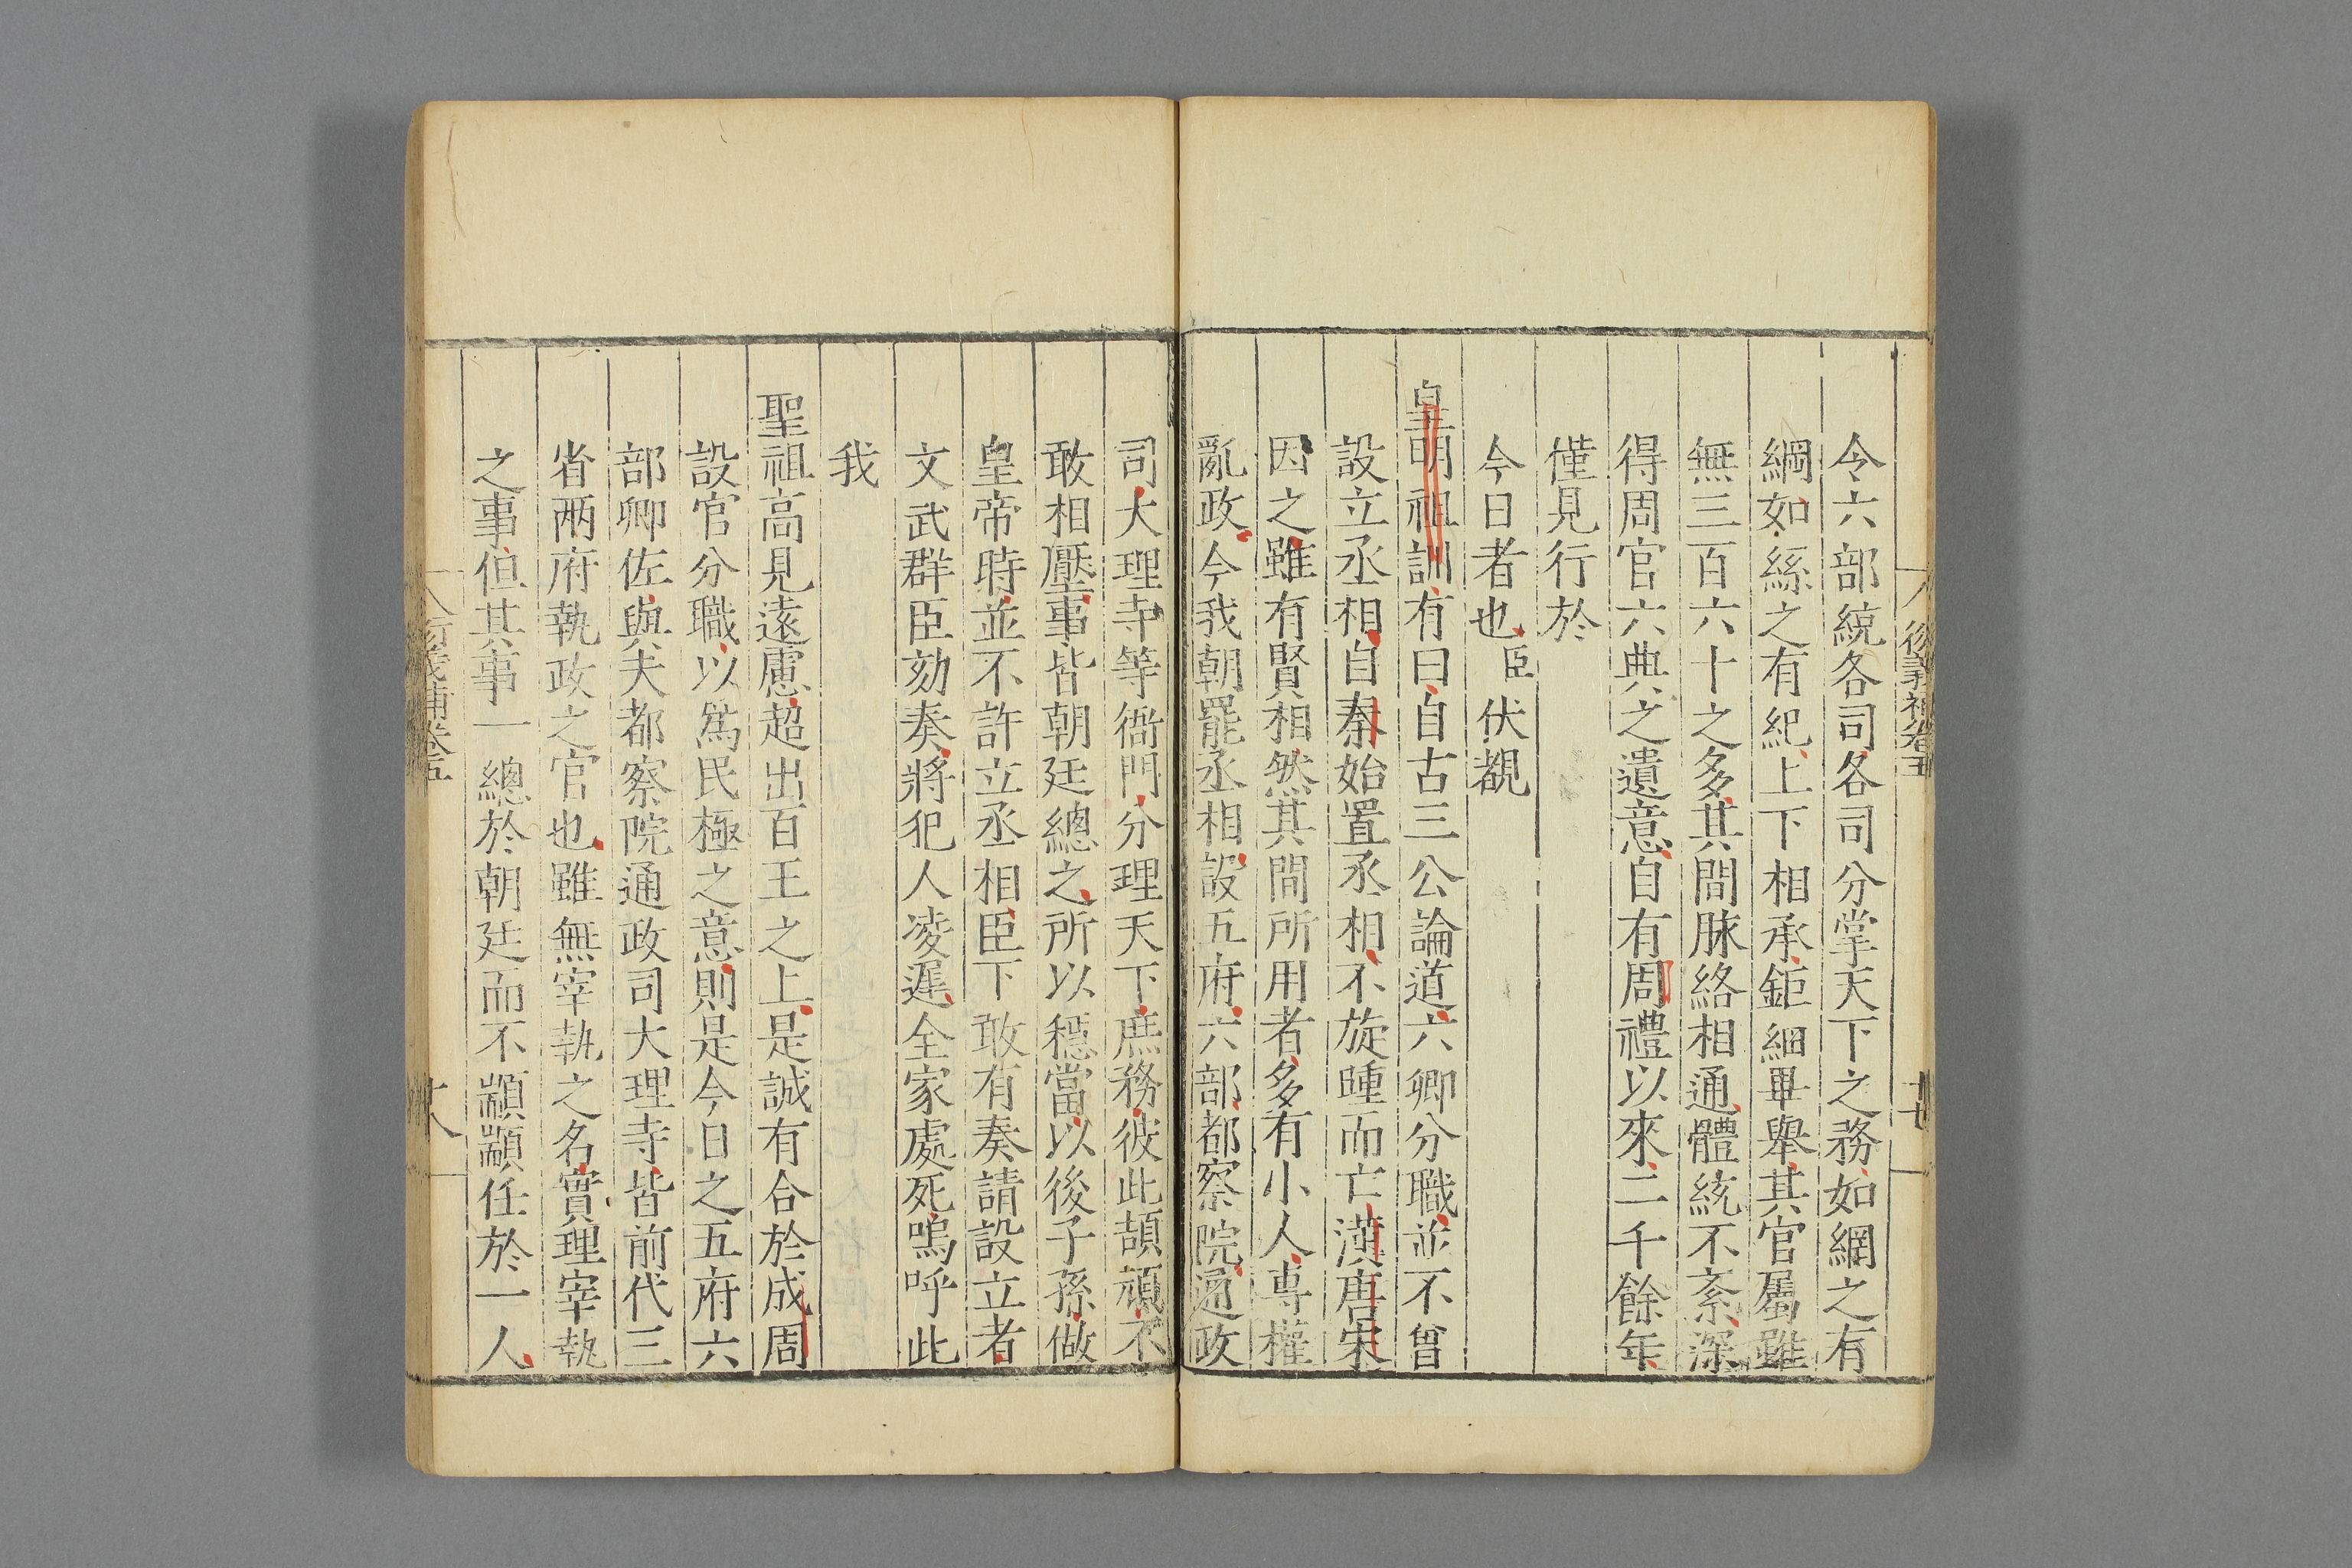 令六部統各司各司分掌天下之務如網之有
綱如絲之有紀上下相承鉅細畢舉其官屬雖
無三百六十之多其間脉絡相通體統不紊深
得周官六典之遺意自有周禮以來二千餘年
僅見行於
今日者也臣伏覩
皇明祖訓有曰自古三公論道六卿分職並不曾
設立丞相自秦始置丞相不旋踵而亡漢唐宋
因之雖有賢相然其間所用者多有小人專權
亂政今我朝罷丞相設五府六部都察院通政
司大理寺等衙門分理天下庶務彼此頡頏不
敢相壓事皆朝廷總之所以穩當以後子孫做
皇帝時並不許立丞相臣下敢有奏請設立者
文武群臣劾奏將犯人凌遲全家處死嗚呼此
我
聖祖高見遠慮超出百王之上是誠有合於成周
設官分職以為民極之意則是今日之五府六
部卿佐與夫都察院通政司大理寺皆前代三
省兩府執政之官也雖無宰執之名實理宰執
之事但其事一總於朝廷而不顓顓任於一人